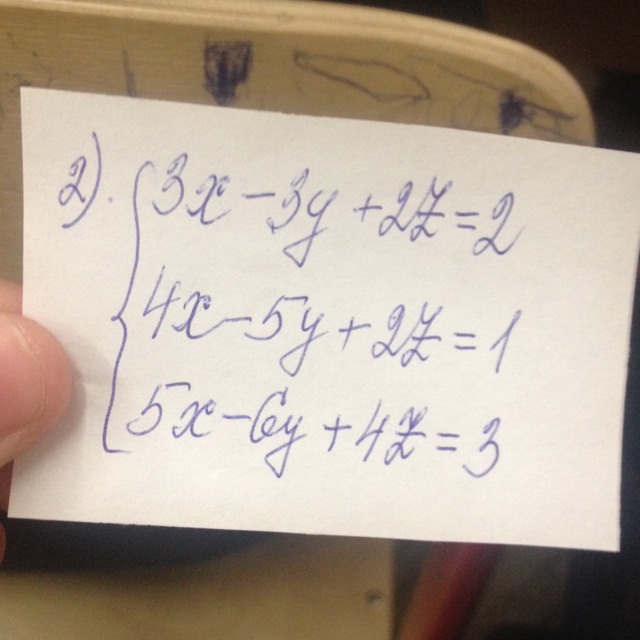 2). 3x-3y+2z=2
4x-5y+2z=1
5x-6y+4z=3